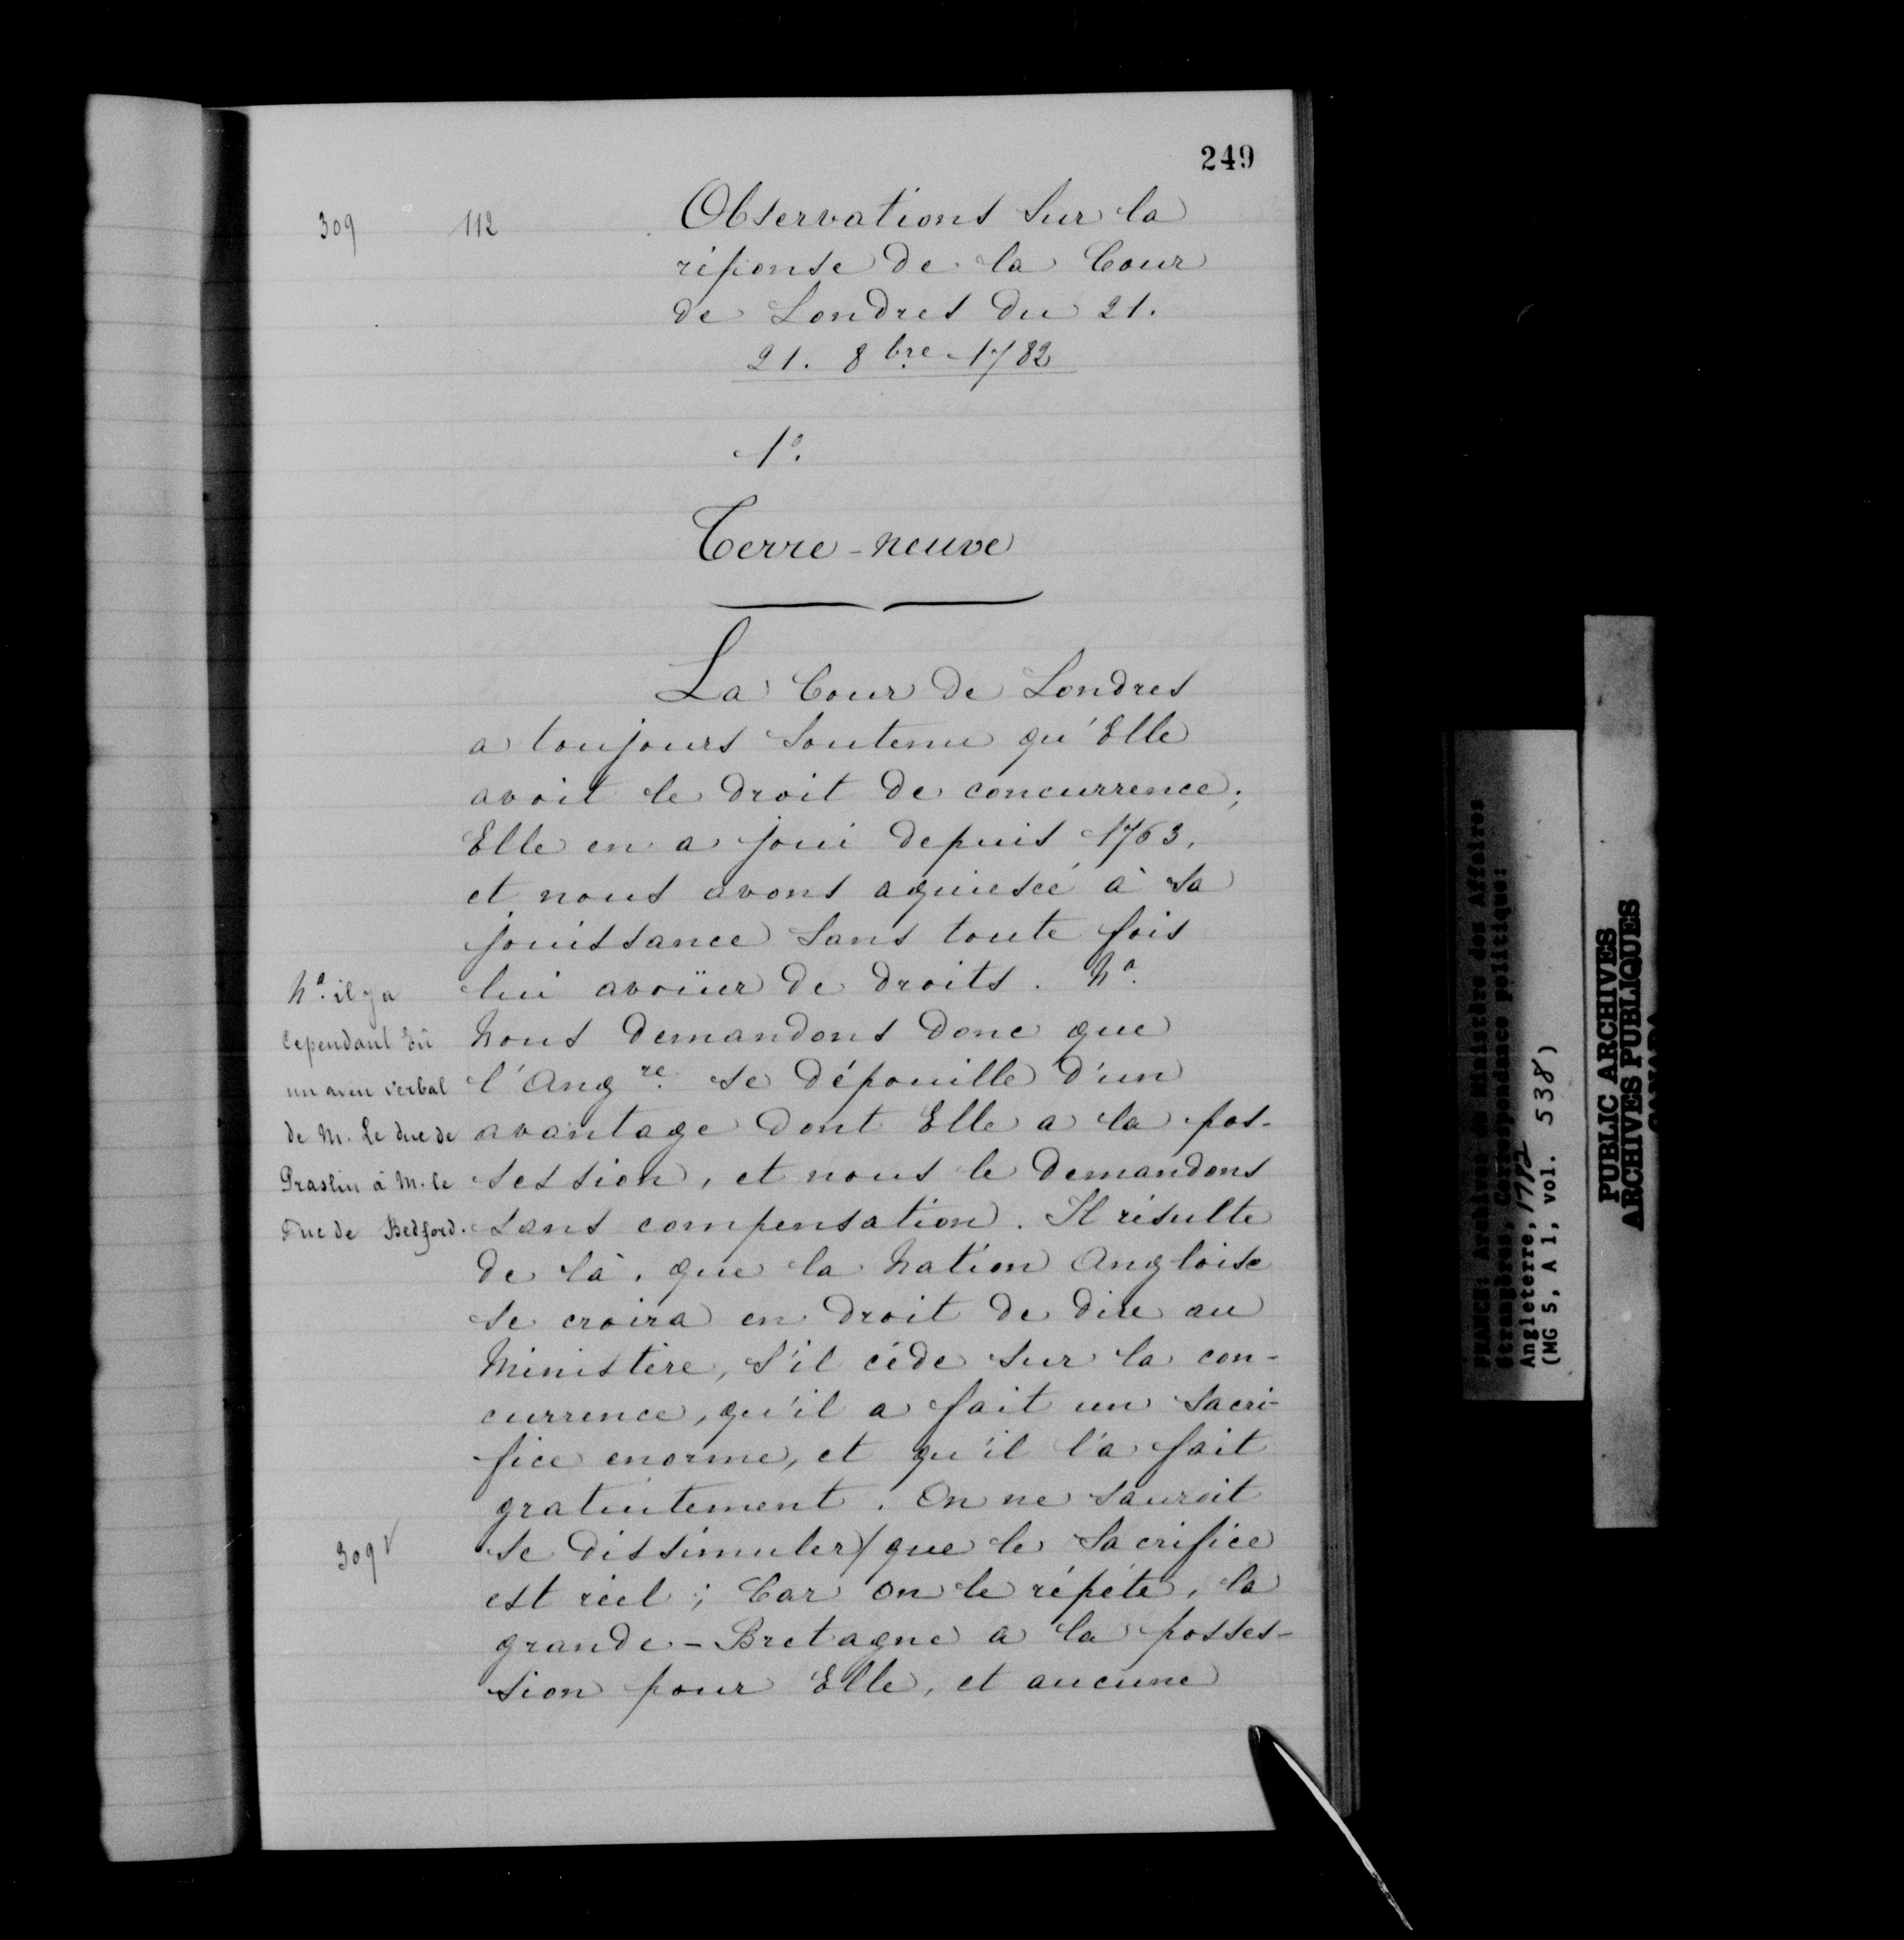 249
309 112 Observations sur la
réponse de la Cour
de Londres du 21.
21. 8bre 1782
1º.
Terre-neuve
La Cour de Londres
a toujours soutenu qu'Elle
avoit le droit de concurrence;
Elle en a joui depuis 1763,
et nous avons aquiescé à sa
jouissance sans toute fois
lui avoüer de droits. Nª.
Nous demandons donc que
l'Angre. se dépouille d'un
avantage dont Elle a la pos-
session, et nous le demandons
sans compensation. Il résulte
de là, que la Nation Angloise
se croira en droit de dire au
Ministère, s'il céde sur la con-
currence, qu'il a fait un sacri-
fice enorme, et qu'il l'a fait
gratuitement. On ne sauroit
se dissimuler/que le sacrifice
est réel; Car on le répéte, la
grande-Bretagne a la posses-
sion pour Elle, et aucune
Nª. il y a
cependant Eû
un aveu verbal
de M. Le duc de
Praslin à M. le
Duc de Bedford.
309v
FRANCE: Archives du Ministère des Affaires
étrangères, Correspondance politique:
Angleterre, 1782
(MG 5, A 1, vol. 538)
PUBLIC ARCHIVES
ARCHIVES PUBLIQUES
CANADA